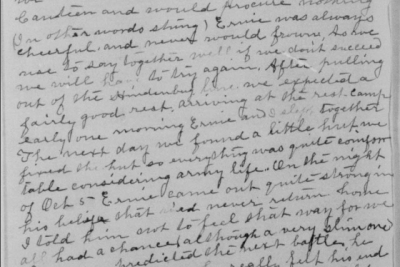 Canteen and would procure nothing
(in other words stung) Ernie was always
cheerful and never would frown, as we
use to say together well if we don't succeed
we will have to try again. After pulling
out of the Hindenburg line we expected a
fairly good rest, arriving at the rest camp
early one morning Ernie and I slept together
The next day we found a little hut, we
fixed the hut so everything was quite comfor
table considering army life. On the night
of Oct 5 Ernie came out quite strong in
his belief that he'd never return home
I told him not to feel that way for we
all had a chance (although a very slim one)
predicted the next battle, he
really felt his end